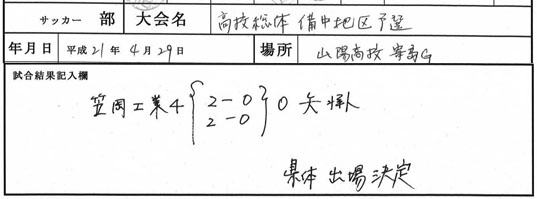 サッカー 部 大会名 高校総体 備中地区予選
年月日 平成 21 年 4 月 29 日 場所 山陽高校 寄島G
試合結果記入欄
笠岡工業 4 { 2-0 } 0 矢掛
2-0
県体 出場決定